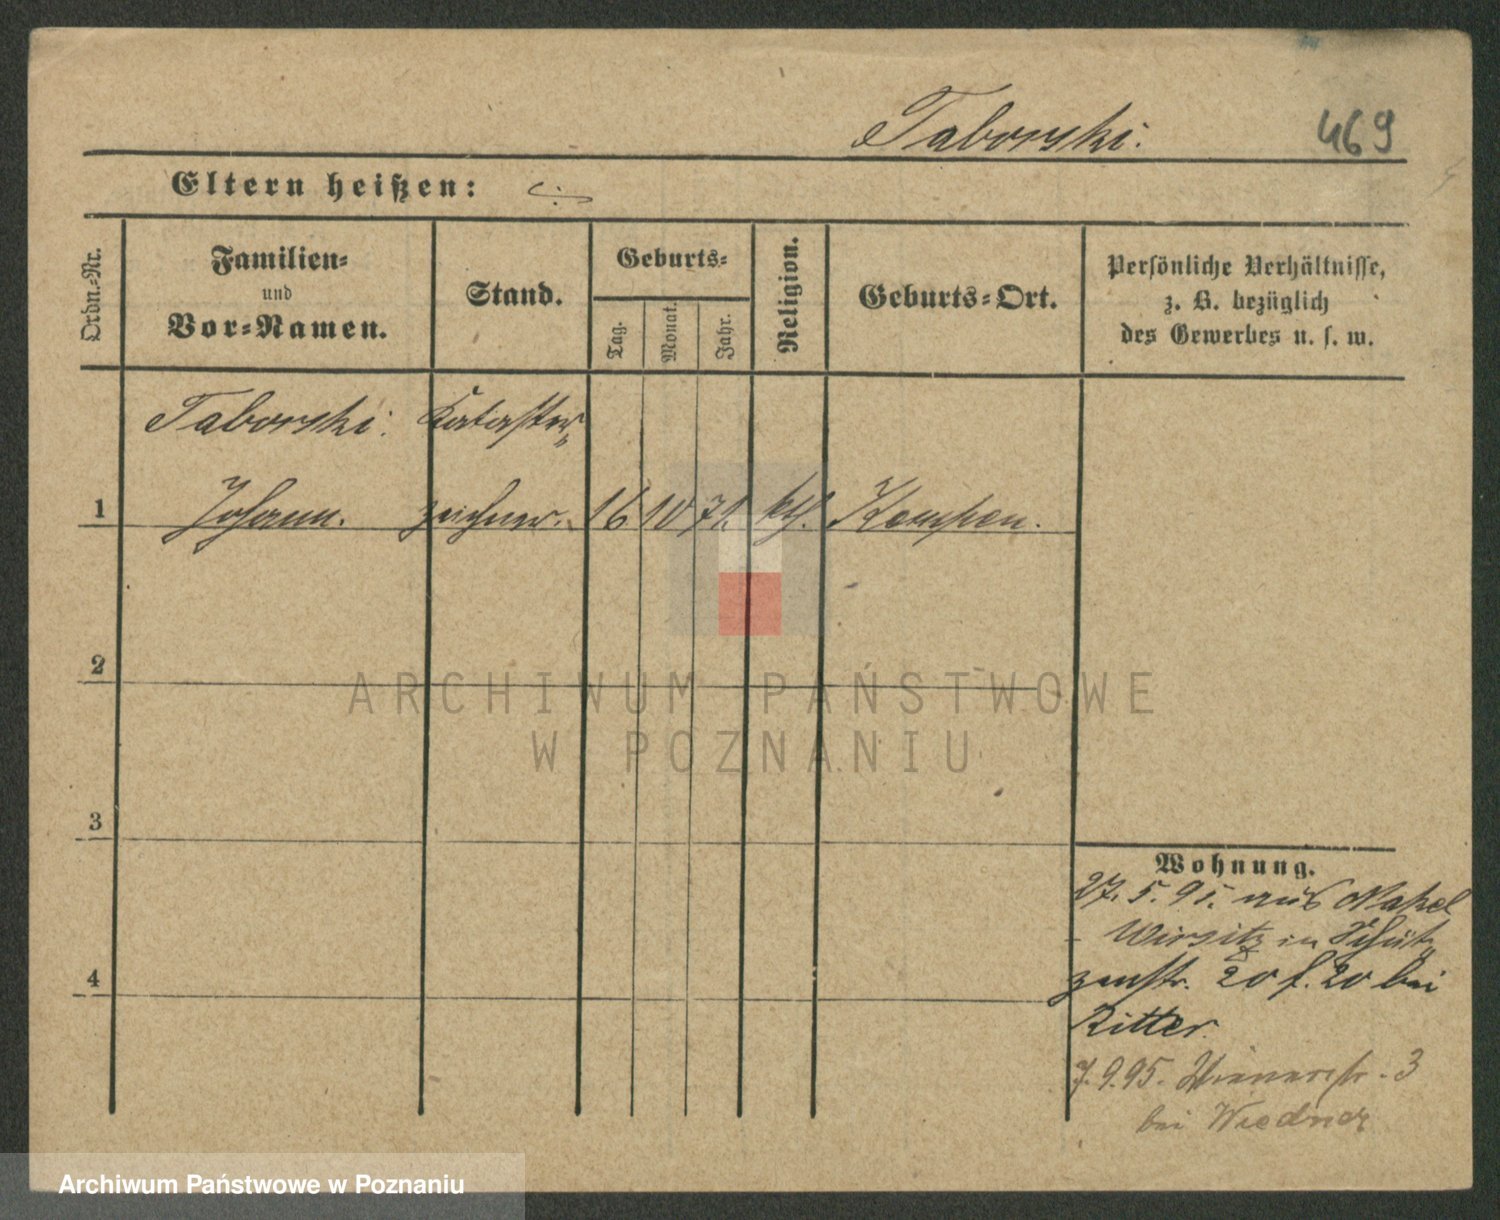 Taborski.
469
Eltern heißen:
Ordn.-Nr.
Familien-
und
Vor-Namen.
Stand.
Geburts-
Tag.
Monat.
Jahr.
Religion.
Geburts-Ort.
Persönliche Verhältnisse,
z. B. bezüglich
des Gewerbes u. s. w.
Taborski. Kataster
1 Johann. zeichner. 16 10 71. kth. Kempen.
2
3
4
Wohnung.
27. 5. 95. aus Nakel
Wirsitz in Schüt-
zenstr. 20 f. 20 bei
Ritter.
7.9.95. 3
bei
ARCHIWUM PAŃSTWOWE
W POZNANIU
Archiwum Państwowe w Poznaniu